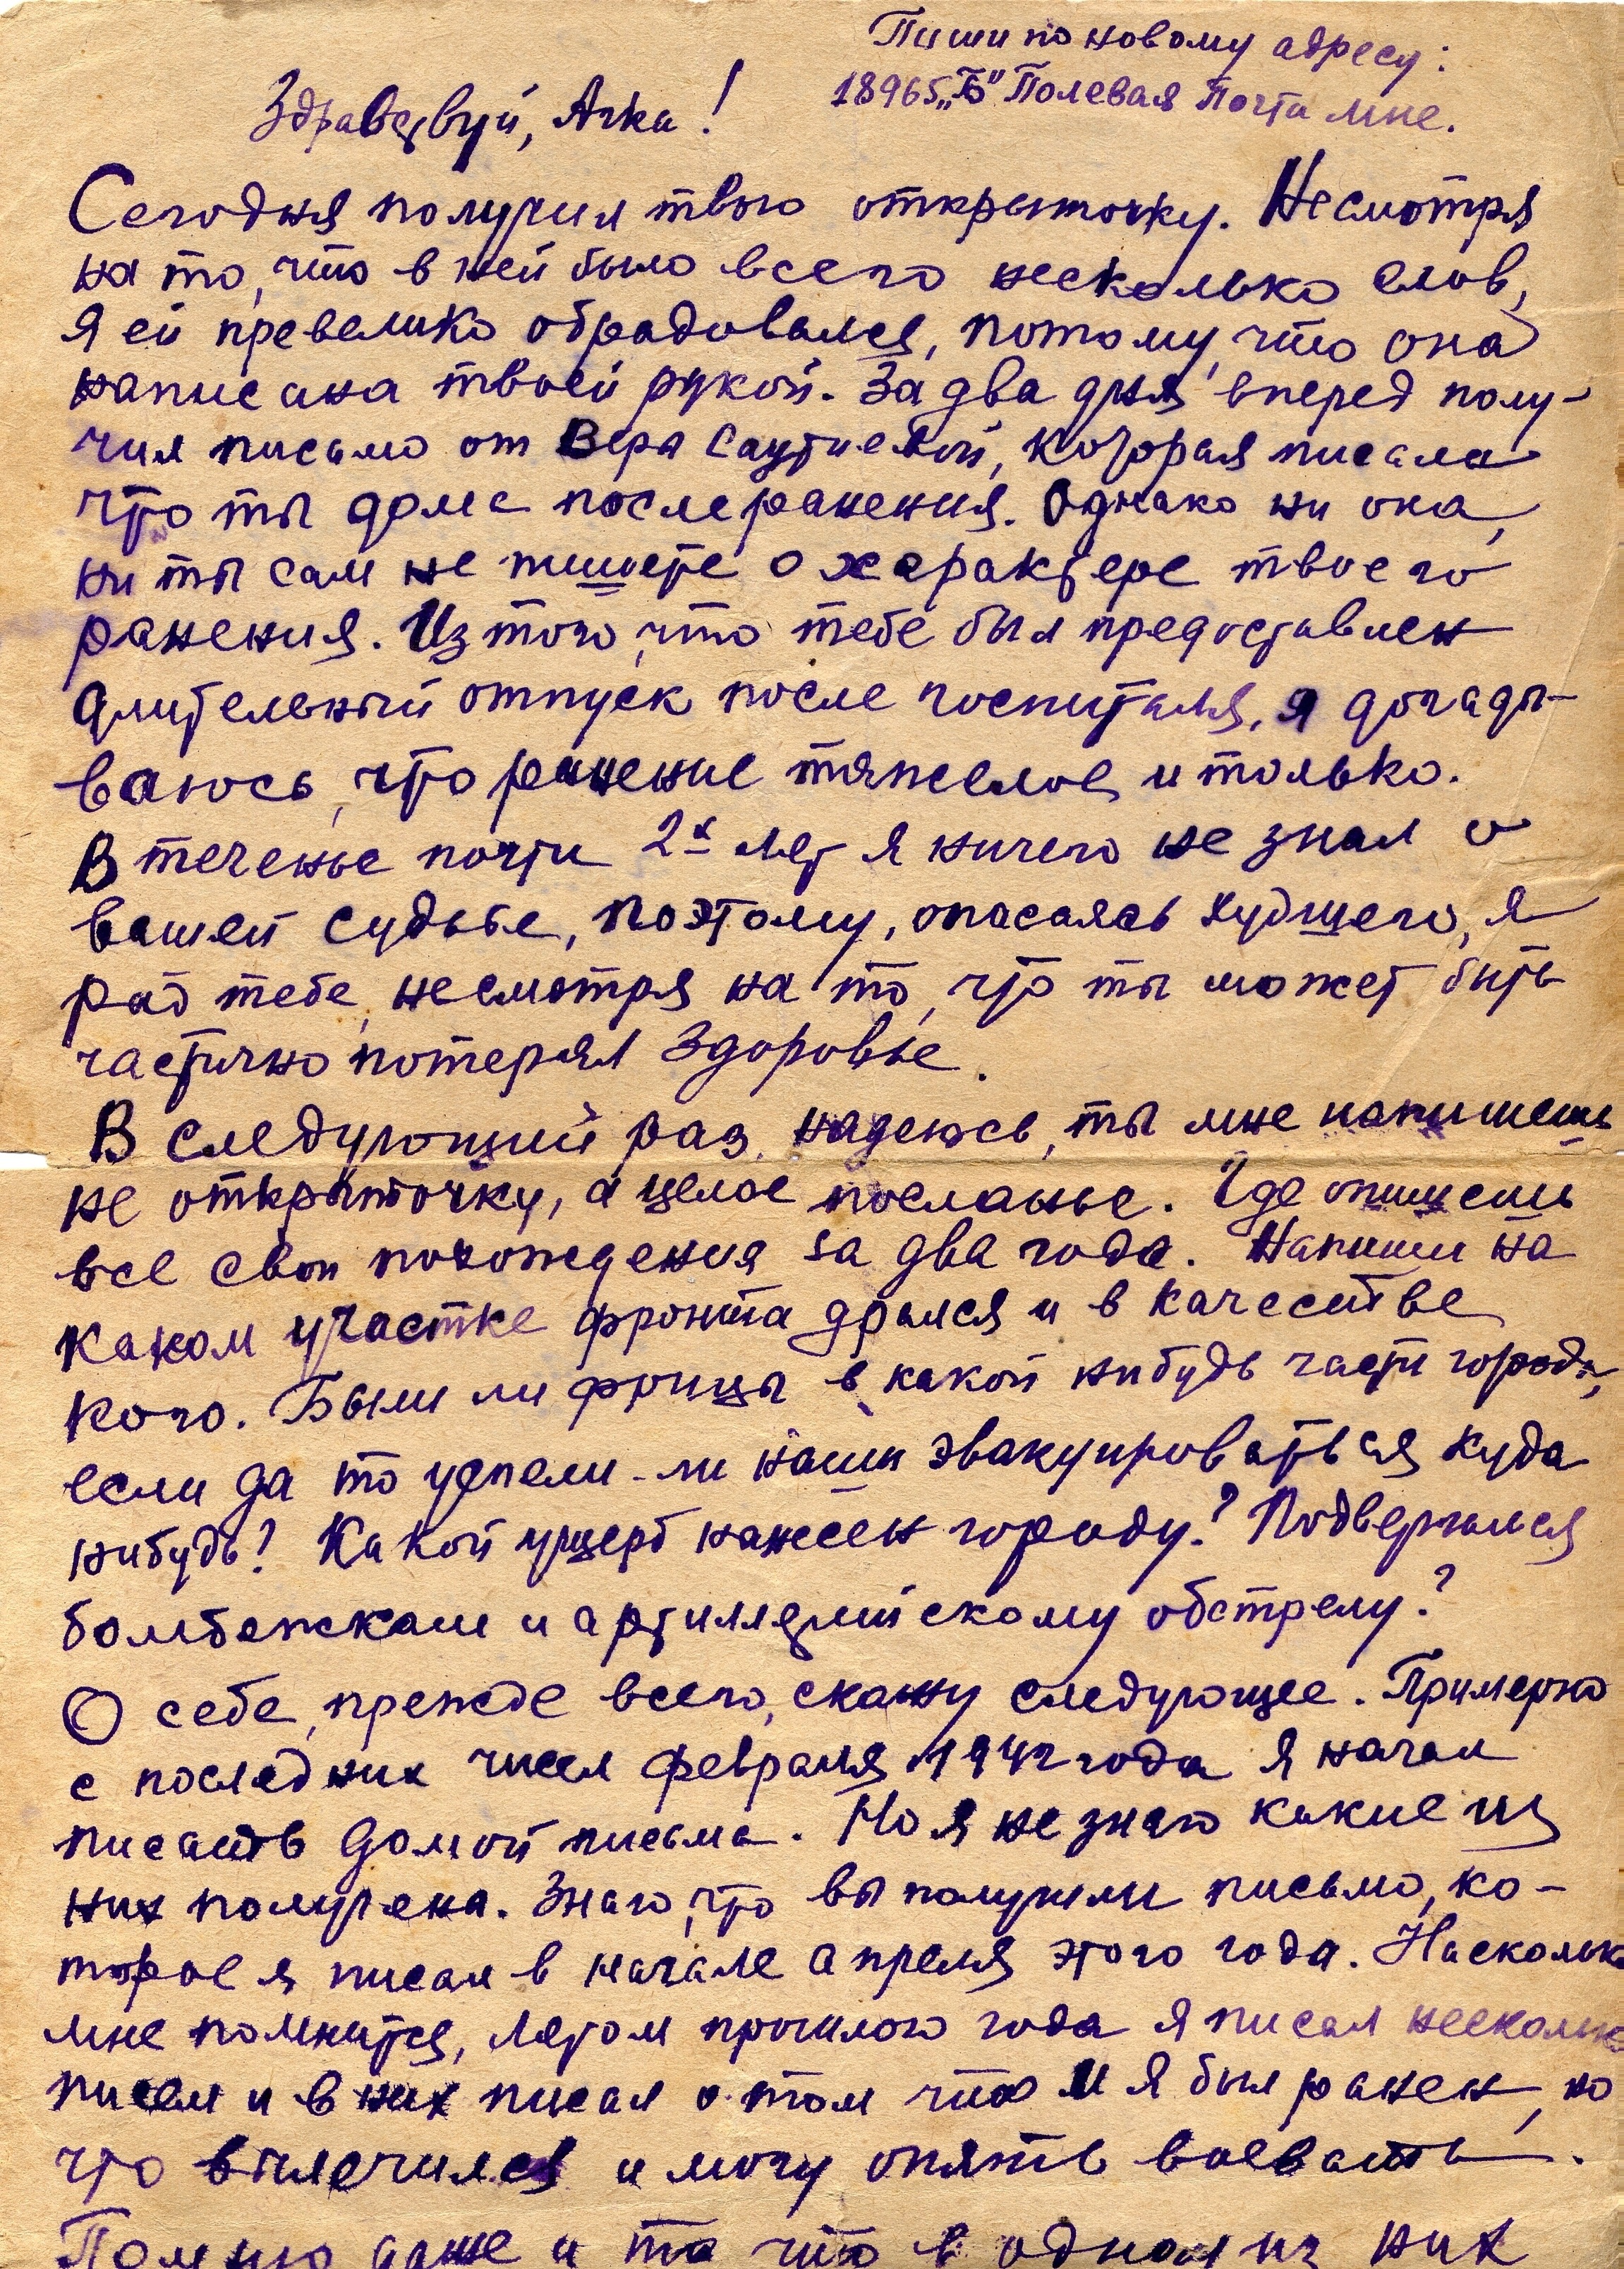 Пиши по новому адресу:
18965 „Б" Полевая Почта мне.
Здравствуй, Ачка!
Сегодня получил твою открыточку. Несмотря
на то, что в ней было всего несколько слов,
я ей превелико обрадовался, потому, что она
написана твоей рукой. За два дня вперед полу-
чил письмо от Веры которая писала
что ты дома после ранения. Однако ни она,
ни ты сам не пишете о характере твоего
ранения. Из того, что тебе был предоставлен
длительный отпуск после госпиталя, я догады-
ваюсь, что ранение тяжелое, и только.
В теченье почти 2х лет я ничего не знал о
вашей судьбе, поэтому, опасаясь худшего, я
рад тебе, несмотря на то, что ты может быть
частично потерял здоровье.
В следующий раз, надеюсь, ты мне напишешь
не открыточку, а целое посланье. Где опишешь
все свои похождения за два года. Напиши на
каком участке фронта дрался и в качестве
кого. Были ли фрицы в какой нибудь части города,
если да то успели-ли наши эвакуироваться куда
нибудь? Какой ущерб нанесен городу? Подвергался
бомбежкам и артиллерийскому обстрелу?
О себе, прежде всего, скажу следующее. Примерно
с последних чисел февраля 1942 года я начал
писать домой письма. Но я не знаю какие из
них получена. Знаю, что вы получили письмо, ко-
торое я писал в начале апреля этого года. Насколько
мне помнится, летом прошлого года я писал несколько
писем и в них писал о том что и я был ранен, но
что вылечился и могу опять воевать.
Помню даже и то что в одном из них